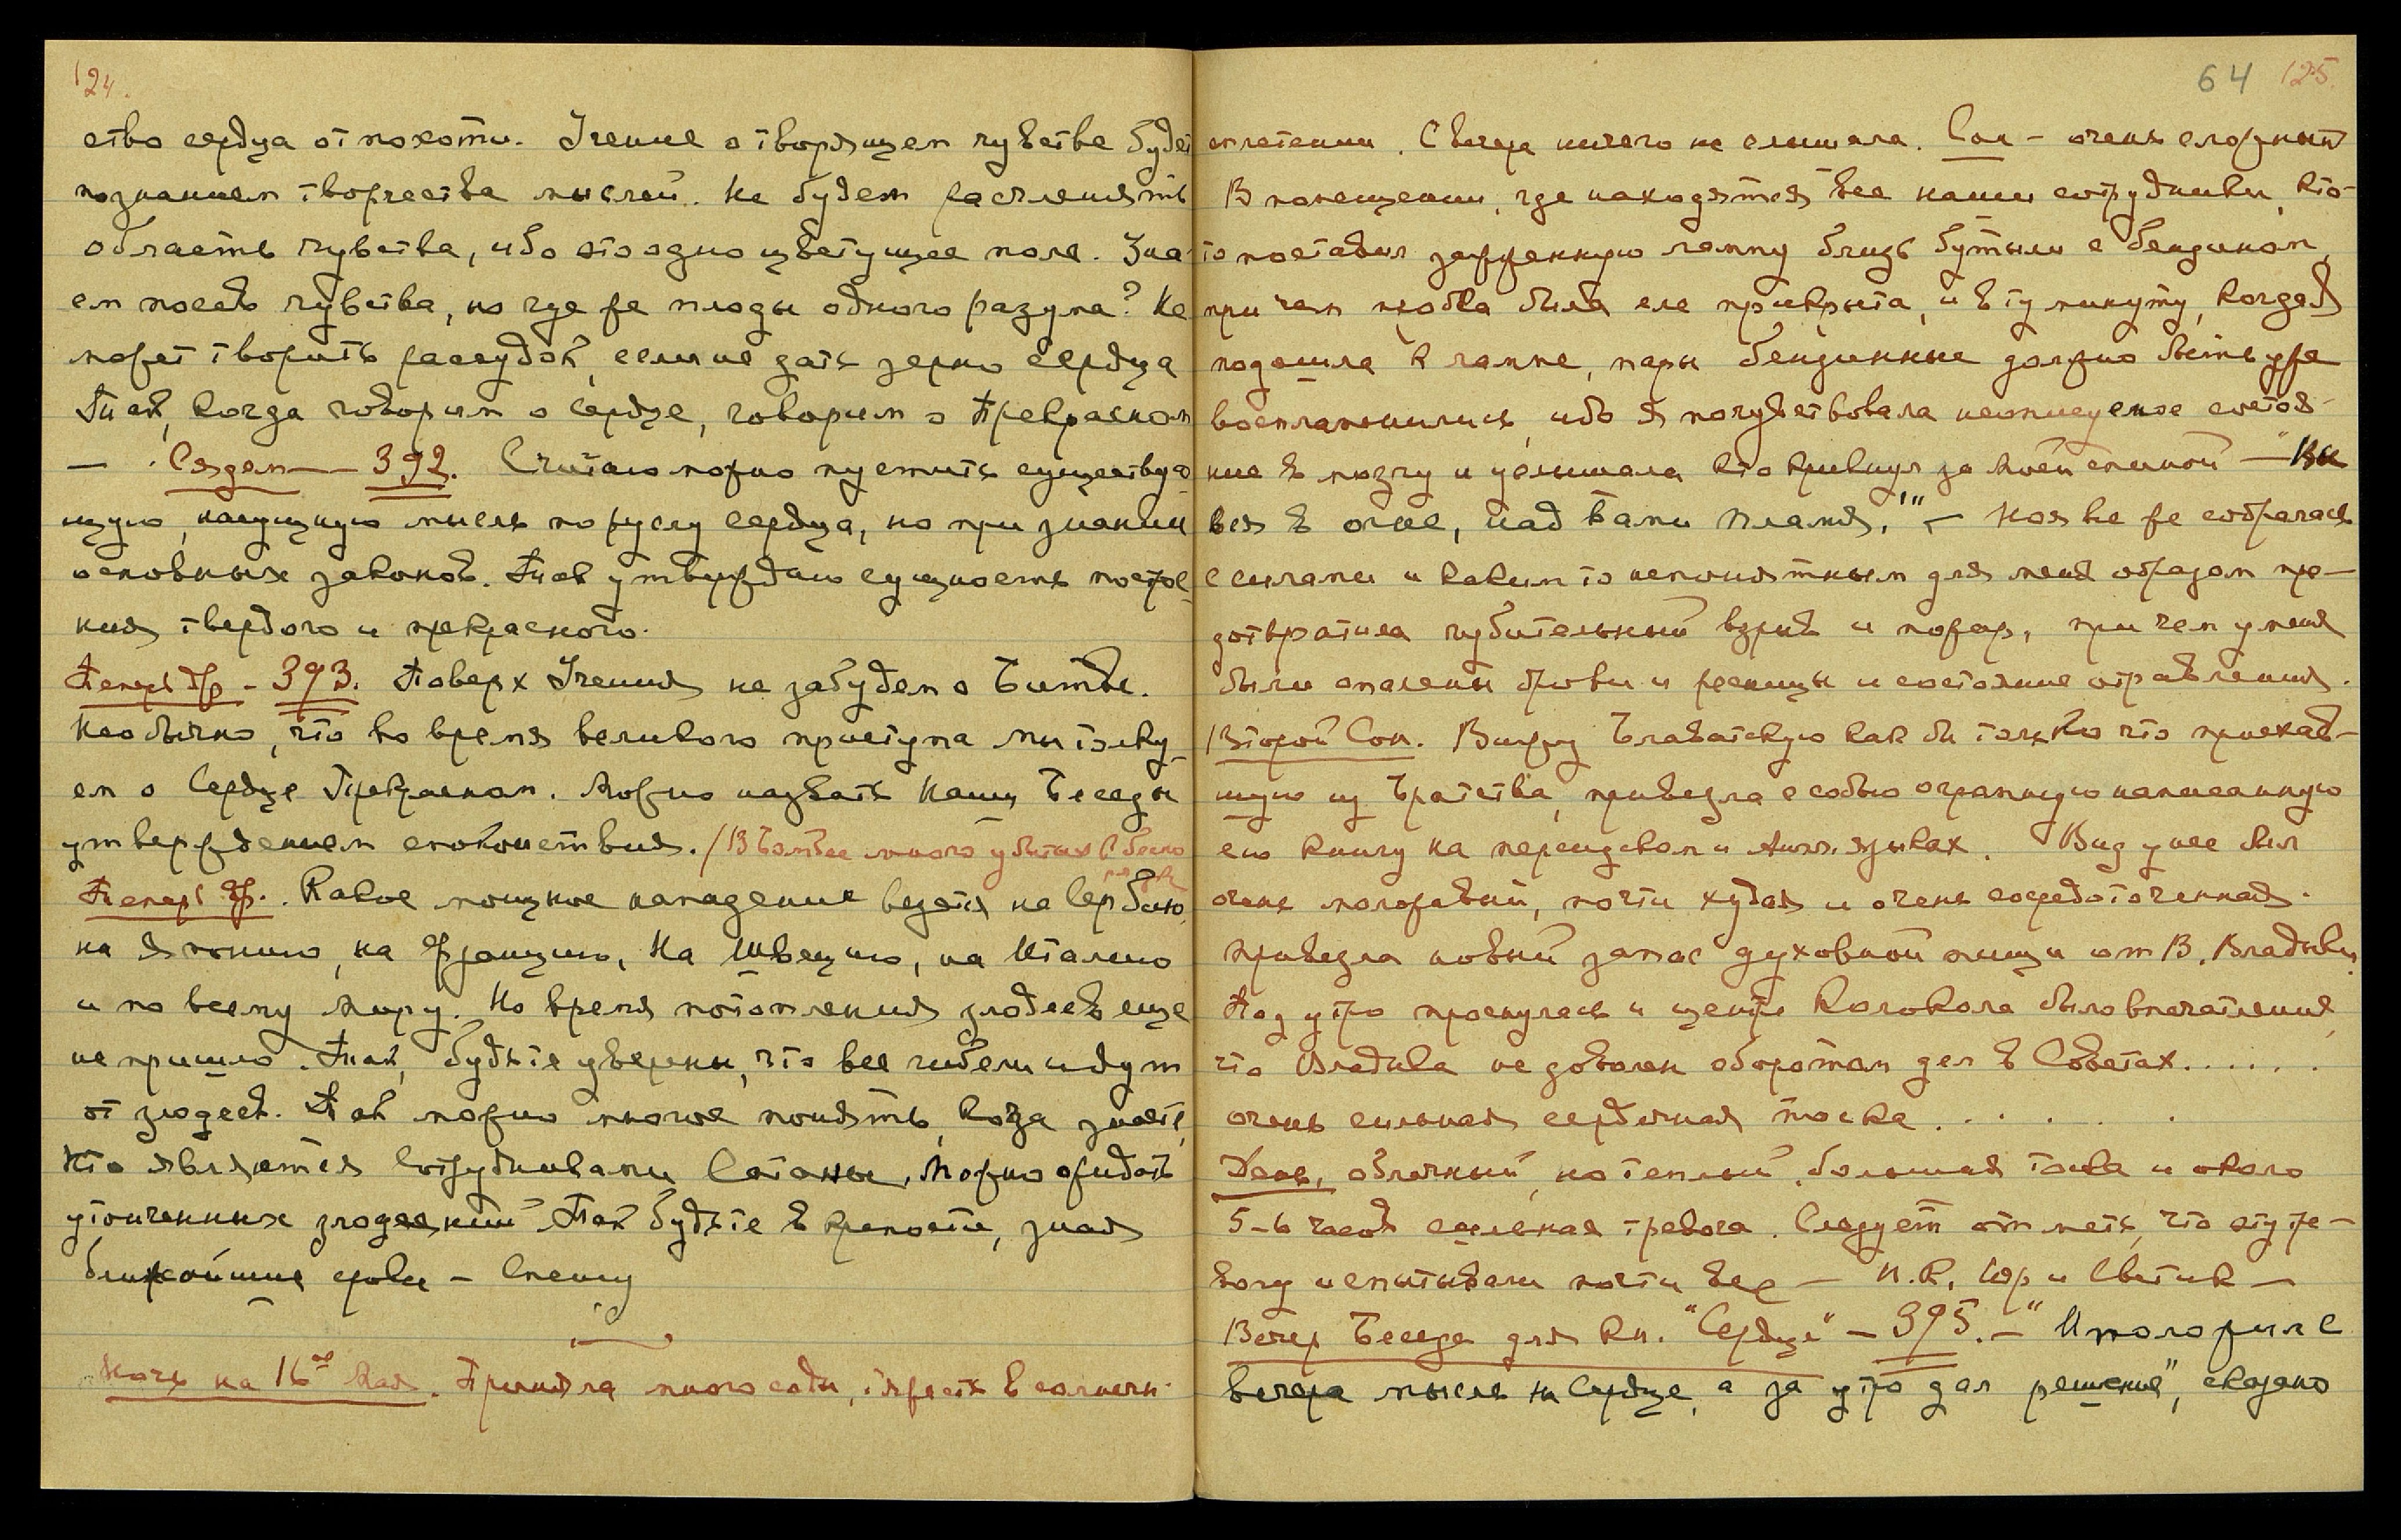 124.
ство сердца от похоти. Учение о творящем чувстве будет
познанием творчества мыслей. Не будем расчленять
область чувства, ибо это одно цветущее поле. Зна-
ем посев чувства, но где же плоды одного разума? Не
может творить рассудок, если не дать зерно сердца
Так, когда говорим о сердце, говорим о Прекрасном
— . Сядем — 392. Считаю можно пустить существую-
щую, насущную мысль по руслу сердца, но при знании
основных законов. Так утверждаю сущность построе-
ния твердого и прекрасного.
Теперь др - 393. Поверх Учения не забудем о Битве.
Необычно, что во время великого приступа мы толку-
ем о Сердце Прекрасном. Можно назвать Наши Беседы
утверждением спокойствия. / В Бомбее много убитых
Теперь др. . Какое мощное нападение ведется на Сербию,
на Японию, на Францию, на Швецию, на Италию
и по всему миру. Но время потопления злодеев еще
не пришло. Так, будьте уверены, что все гибели идут
от злодеев. Так можно многое понять, когда знаете,
кто является сотрудниками Сатаны. Можно ожидать
утонченных злодеяний Так будьте в крепости, зная
ближайшие сроки - Спешу
Ночь на 16ое Мая. Приняла много соды, тяжесть в солнечн.
64 125.
сплетении. С вечера ничего не слышала. Сон - очень сложный
В помещении, где находятся все наши сотрудники, кто-
то поставил зажженную лампу близь бутыли с бензином,
при чем пробка была еле прикрыта, и в ту минуту, когда я
подошла к лампе, пары бензинные должно быть уже
воспламенились, ибо я почувствовала неописуемое состоя-
ние в мозгу и услышала кто крикнул за моей спиной — "Вы
вся в огне, над Вами пламя," — Но я все же собралась
с силами и каким то непонятным для меня образом пре-
дотвратила губительный взрыв и пожар, при чем у меня
были опалены брови и ресницы и состояние отравления.
Второй Сон. Вижу Блаватскую как бы только что приехав-
шую из Братства, привезла с собою огромную написанную
ею книгу на персидском и Англ. языках. Вид у нее был
очень моложавый, почти худая и очень сосредоточенная.
Привезла новый запас духовной пищи от В. Владыки.
Под утро проснулась и центре Колокола было впечатление,
что Владыка не доволен оборотом дел в Советах......
очень сильная сердечная тоска . . . . .
День, облачный, но теплый. большая тоска и около
5-6 часов сильная тревога. Следует отметь, что эту тре-
вогу испытывали почти все — Н.К. Юр и Светик —
Вечер Беседа для Кн. "Сердце" - 395. — "И положил с
вечера мысль на Сердце, а за утро дал решение", сказано